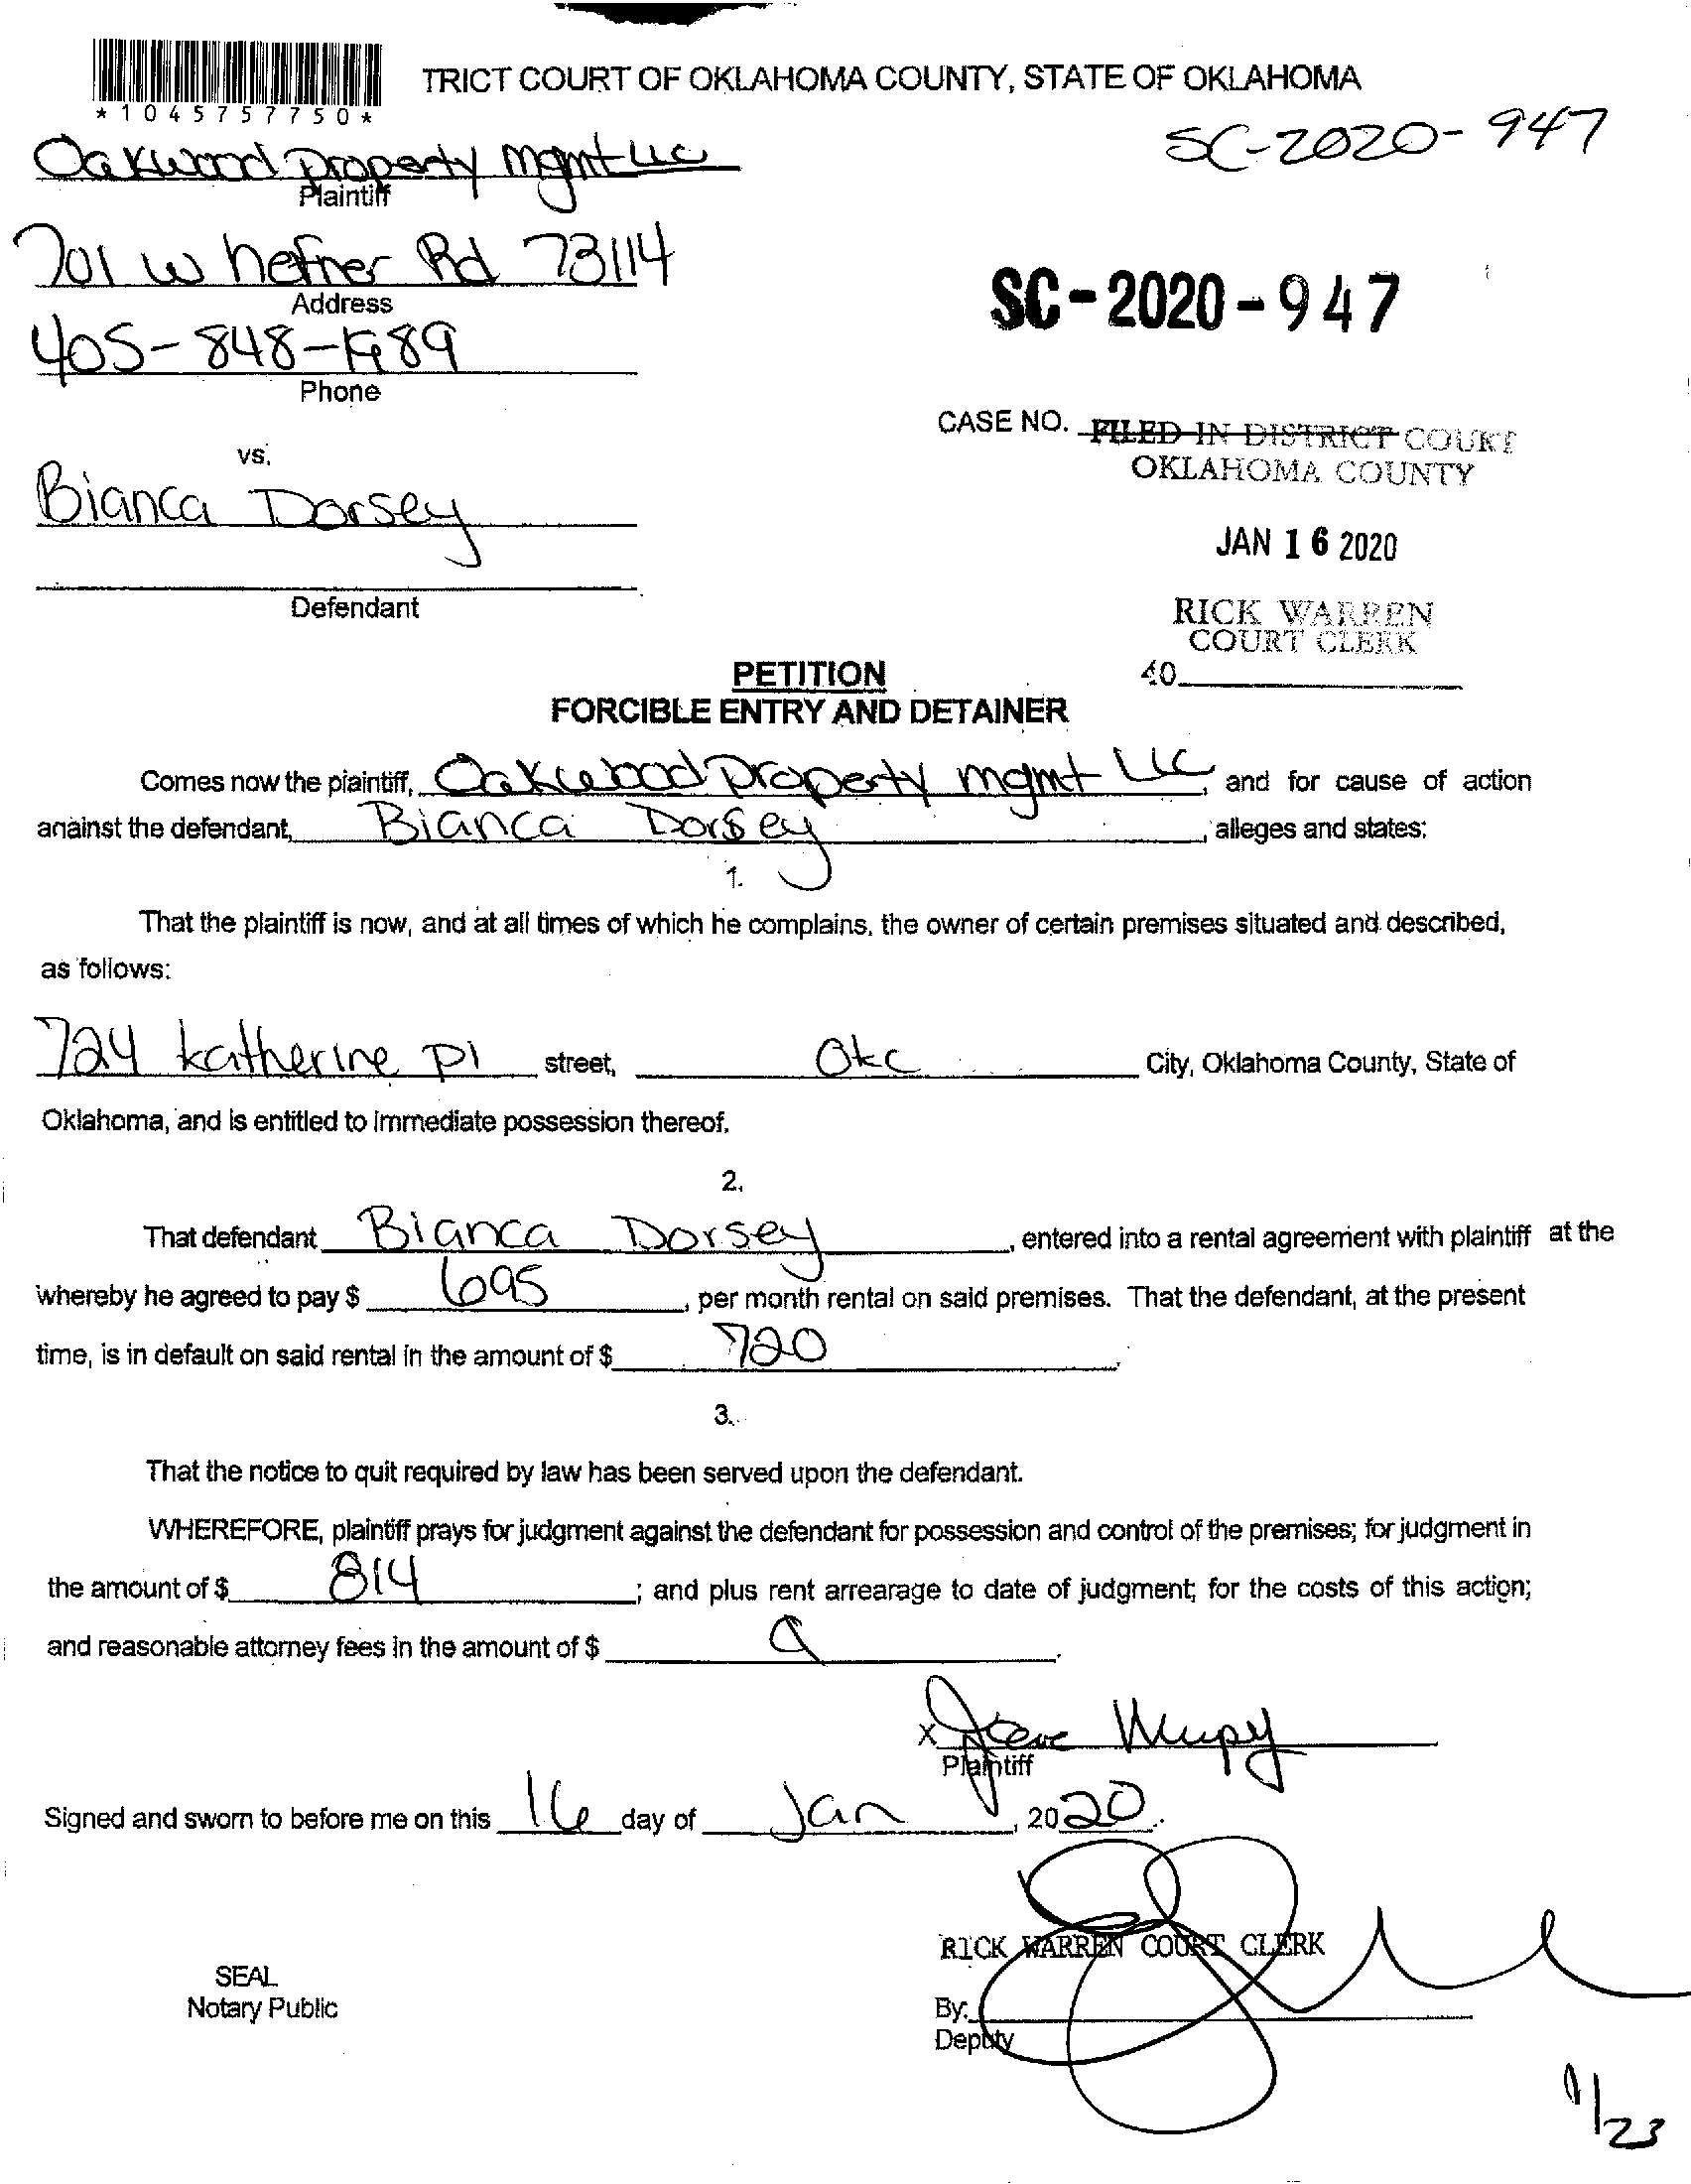 TRICT COURT OF OKLAHOMA COUNTY, STATE OF OKLAHOMA
*1045757750*
SC-2020-947
Oakwood Property Mgmt LLC
Plaintiff
701 W hefner Rd 73114
Address
SC-2020-947
405-848-
Phone
CASE NO. FILED IN DISTRICT COURT
OKLAHOMA COUNTY
vs.
Bianca Dorsey
JAN 16 2020
Defendant
RICK WARREN
COURT CLERK
40
PETITION
FORCIBLE ENTRY AND DETAINER
Comes now the plaintiff, Oakwood Property mgmt LLC, and for cause of action
against the defendant, Bianca Dorsey, alleges and states:
1.
That the plaintiff is now, and at all times of which he complains, the owner of certain premises situated and described,
as follows:
724 katherine pl street, Okc City, Oklahoma County, State of
Oklahoma, and is entitled to immediate possession thereof.
2.
That defendant Bianca Dorsey, entered into a rental agreement with plaintiff at the
whereby he agreed to pay $ 695, per month rental on said premises. That the defendant, at the present
time, is in default on said rental in the amount of $ 720.
3.
That the notice to quit required by law has been served upon the defendant.
WHEREFORE, plaintiff prays for judgment against the defendant for possession and control of the premises; for judgment in
the amount of $ 814; and plus rent arrearage to date of judgment; for the costs of this action;
and reasonable attorney fees in the amount of $
x Steve
Plaintiff
Signed and sworn to before me on this 16 day of Jan, 2020.
RICK WARREN COURT CLERK
SEAL
Notary Public
By:
Deputy
1/23